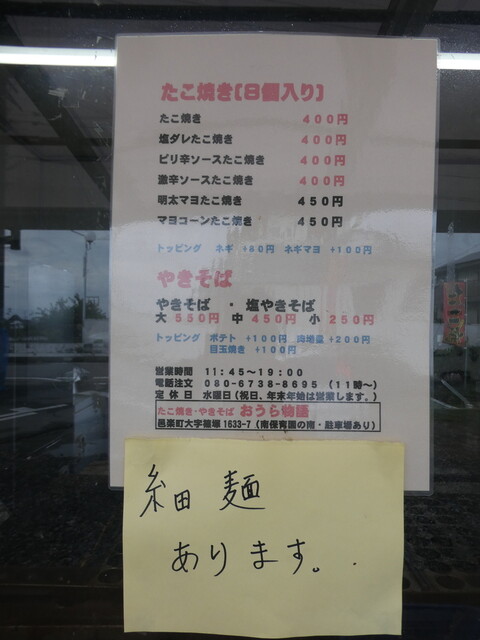 たこ焼き〔8個入り〕
たこ焼き 400円
塩ダレたこ焼き 400円
ピリ辛ソースたこ焼き 400円
激辛ソースたこ焼き 400円
明太マヨたこ焼き 450円
マヨコーンたこ焼き 450円
トッピング ネギ +80円 ネギマヨ +100円
やきそば
やきそば ・ 塩やきそば
大 550円 中 450円 小 250円
トッピング ポテト +100円 肉増量 +200円
目玉焼き +100円
営業時間 11:45～19:00
電話注文 080-6738-8695 (11時～)
定休日 水曜日(祝日、年末年始は営業します。)
たこ焼き・やきそば おうら物語
邑楽町大字篠塚1633-7(南保育園の南・駐車場あり)
細麺
あります。